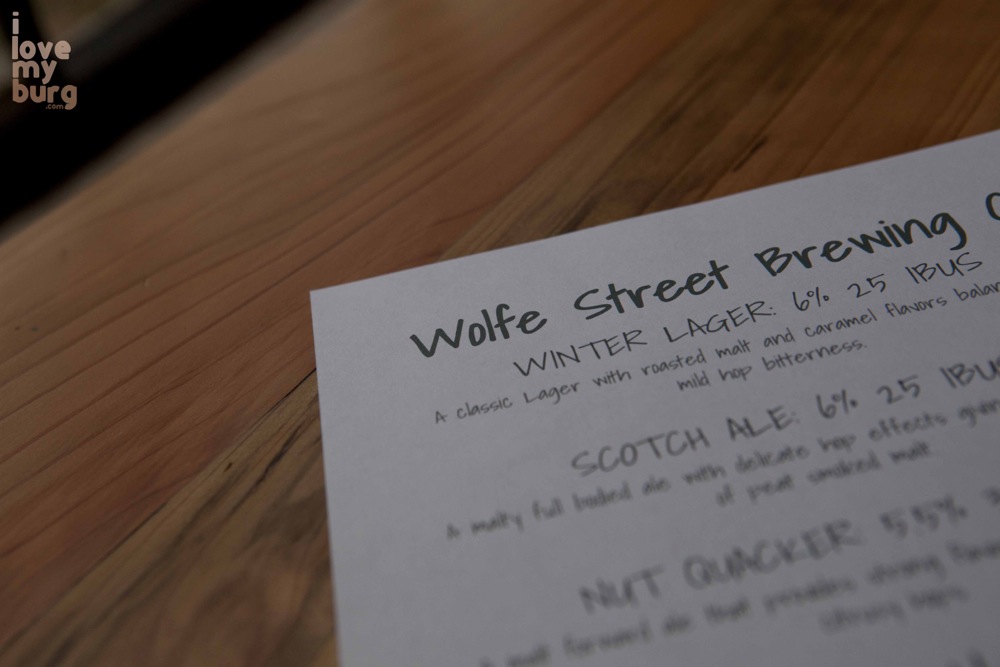 i
love
my
burg
.com
Wolfe Street Brewing C
WINTER LAGER: 6% 25 IBUS
A classic Lager with roasted malt and caramel flavors balan
mild hop bitterness.
SCOTCH ALE: 6% 25 IBU
A malty full bodied ale with delicate hop effects
of peat smoked malt.
NUT QUACKER: 5.5%
A malt forward ale that provides strong